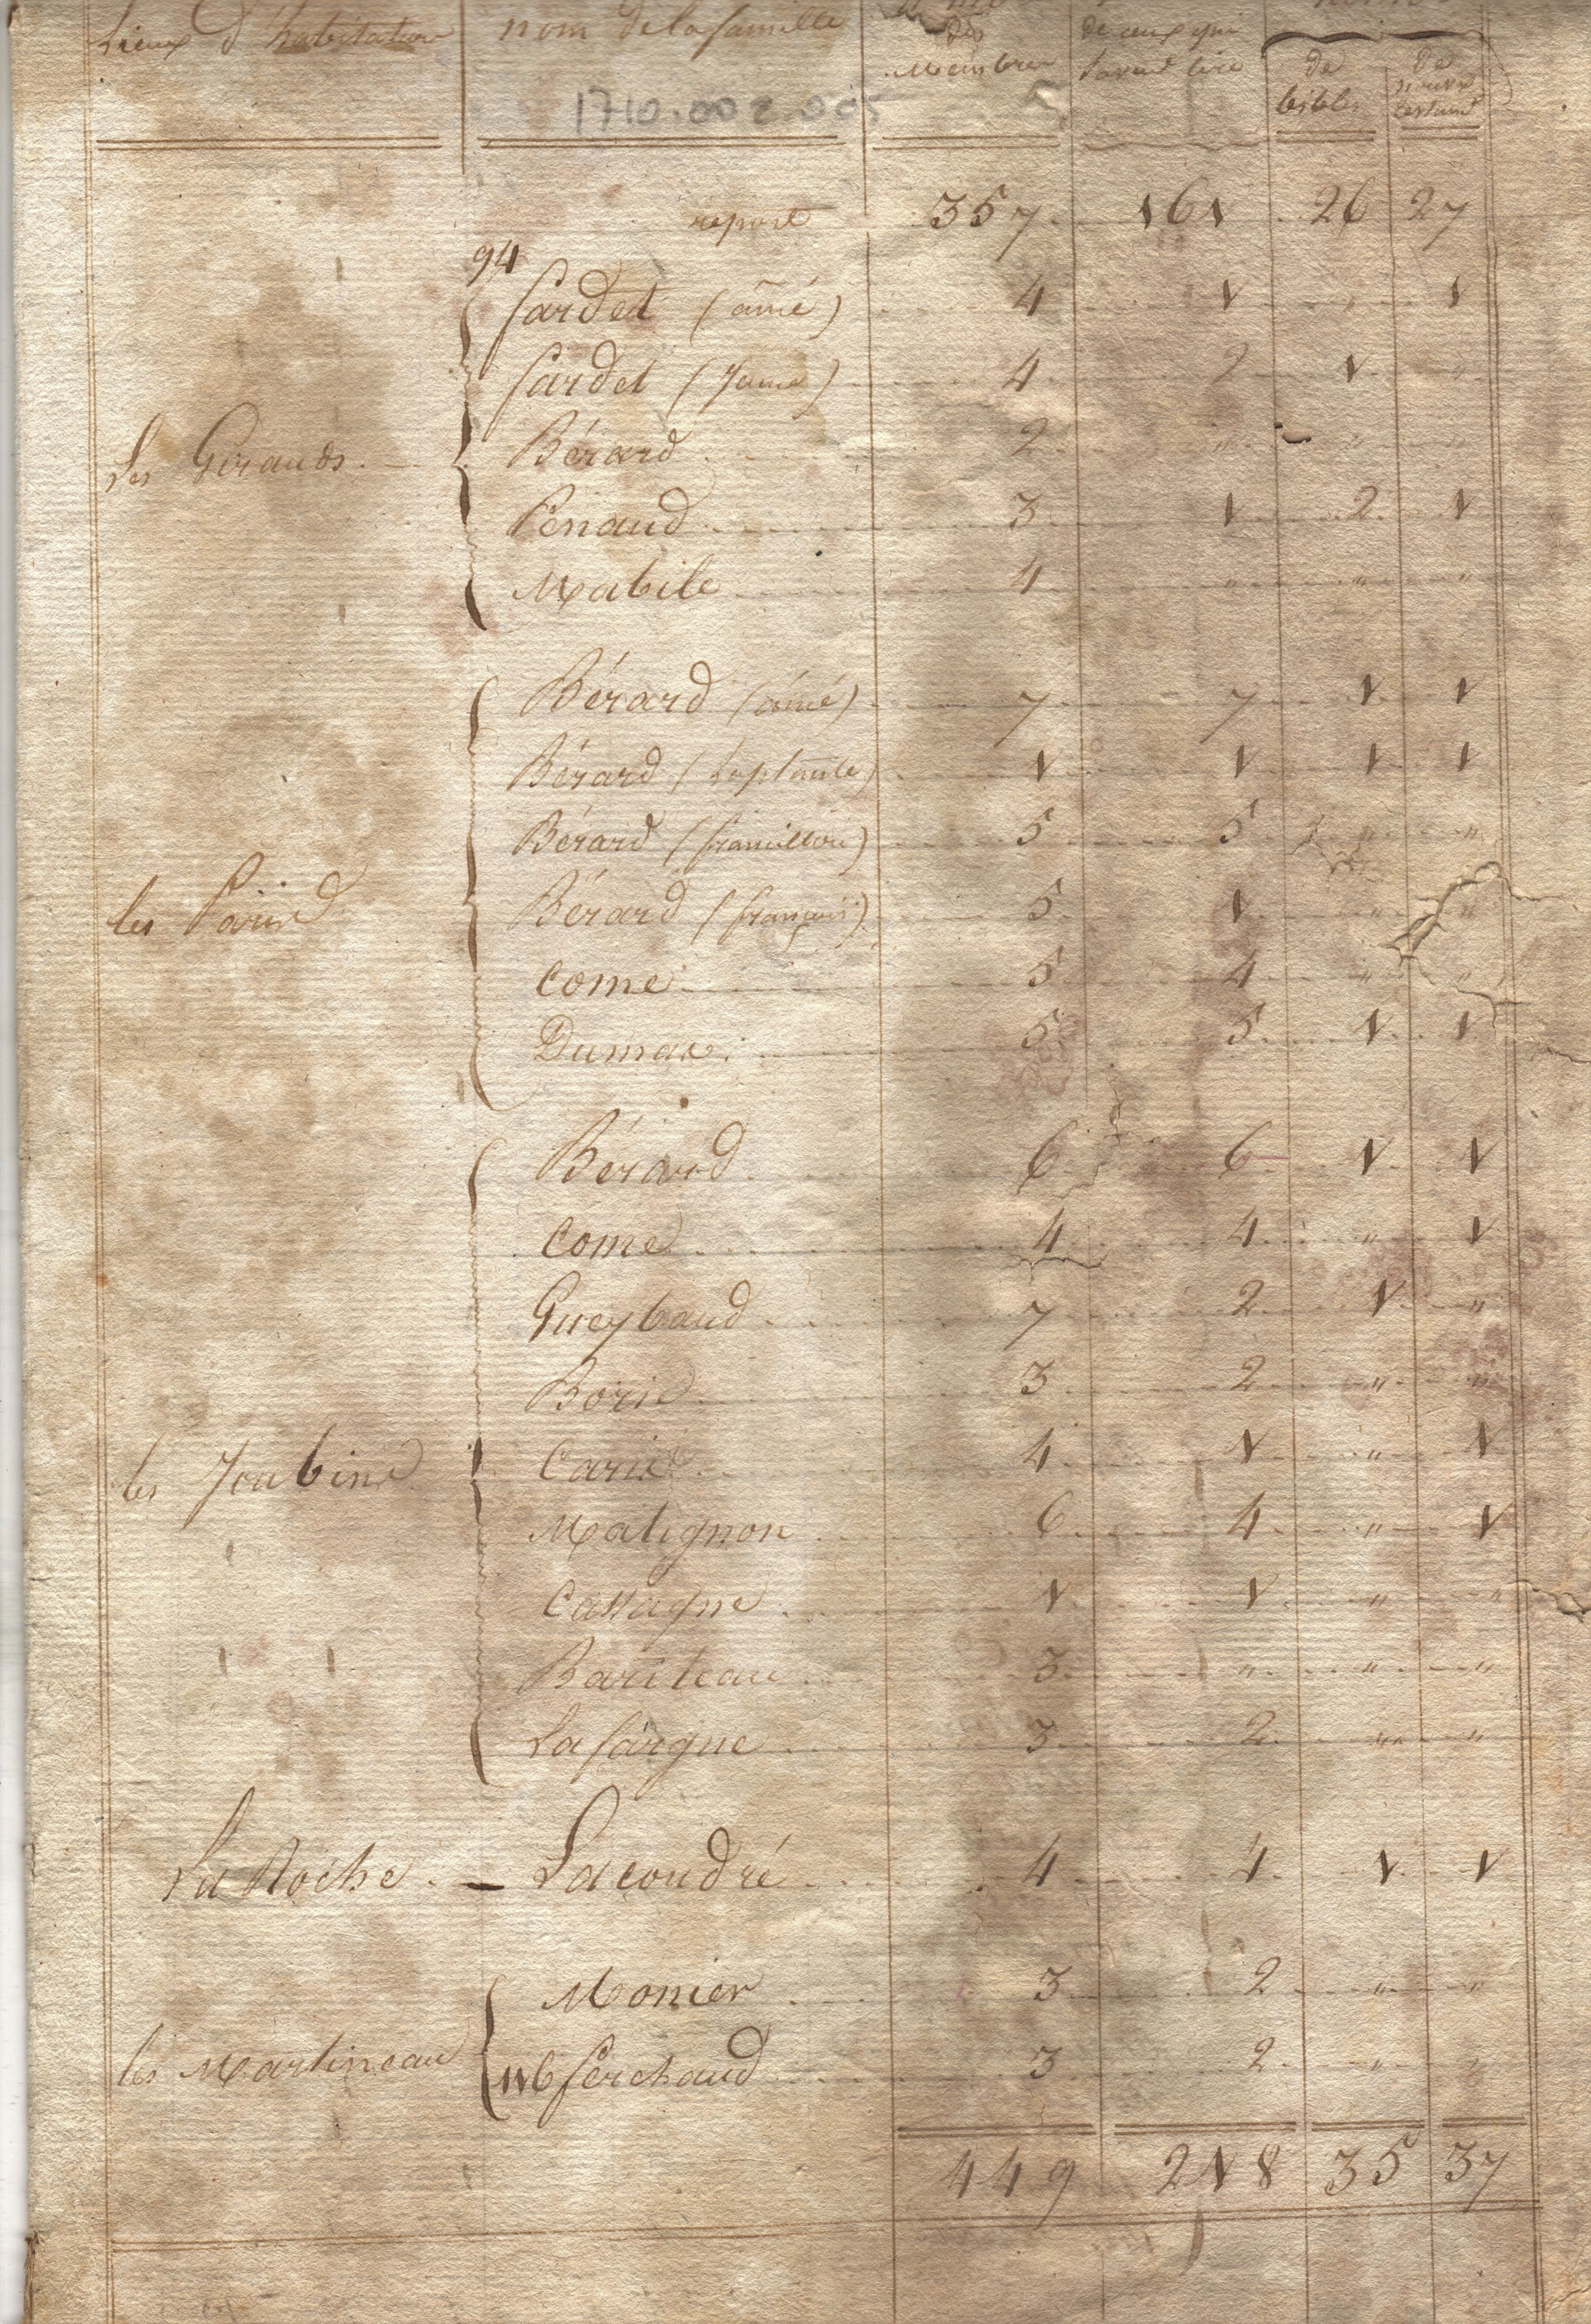 Lieux d'habitation nom de la famille des Membres de ceux qui savent lire de bibles de nouv. testam.
1710.002.005
report 357 161 26 27
94
Sardet (aîné) 4 1 " 1
Sardet (Jeune) 4 2 1 "
Les Girauds Bérard 2 " " "
Penaud 3 1 2 1
Mabile 4 " " "
Bérard (aîné) 7 7 1 1
Bérard 1 1 1 1
Bérard 5 5 " "
les Bérard (françois) 5 1 " "
Come 5 4 " "
Dumas 5 5 1 1
Bérard 6 6 1 1
Come 4 4 " 1
Gueybaud 7 2 1 "
3 2 " "
les Joubins 4 1 " 1
Matignon 6 4 " 1
Castagne 1 1 " "
Bariteau 3 " " "
Lafargue 3 2 " "
La Roche Lacoudré 4 4 1 1
Monier 3 2 " "
les Martineau 116 ferchaud 3 2 " "
449 218 35 37